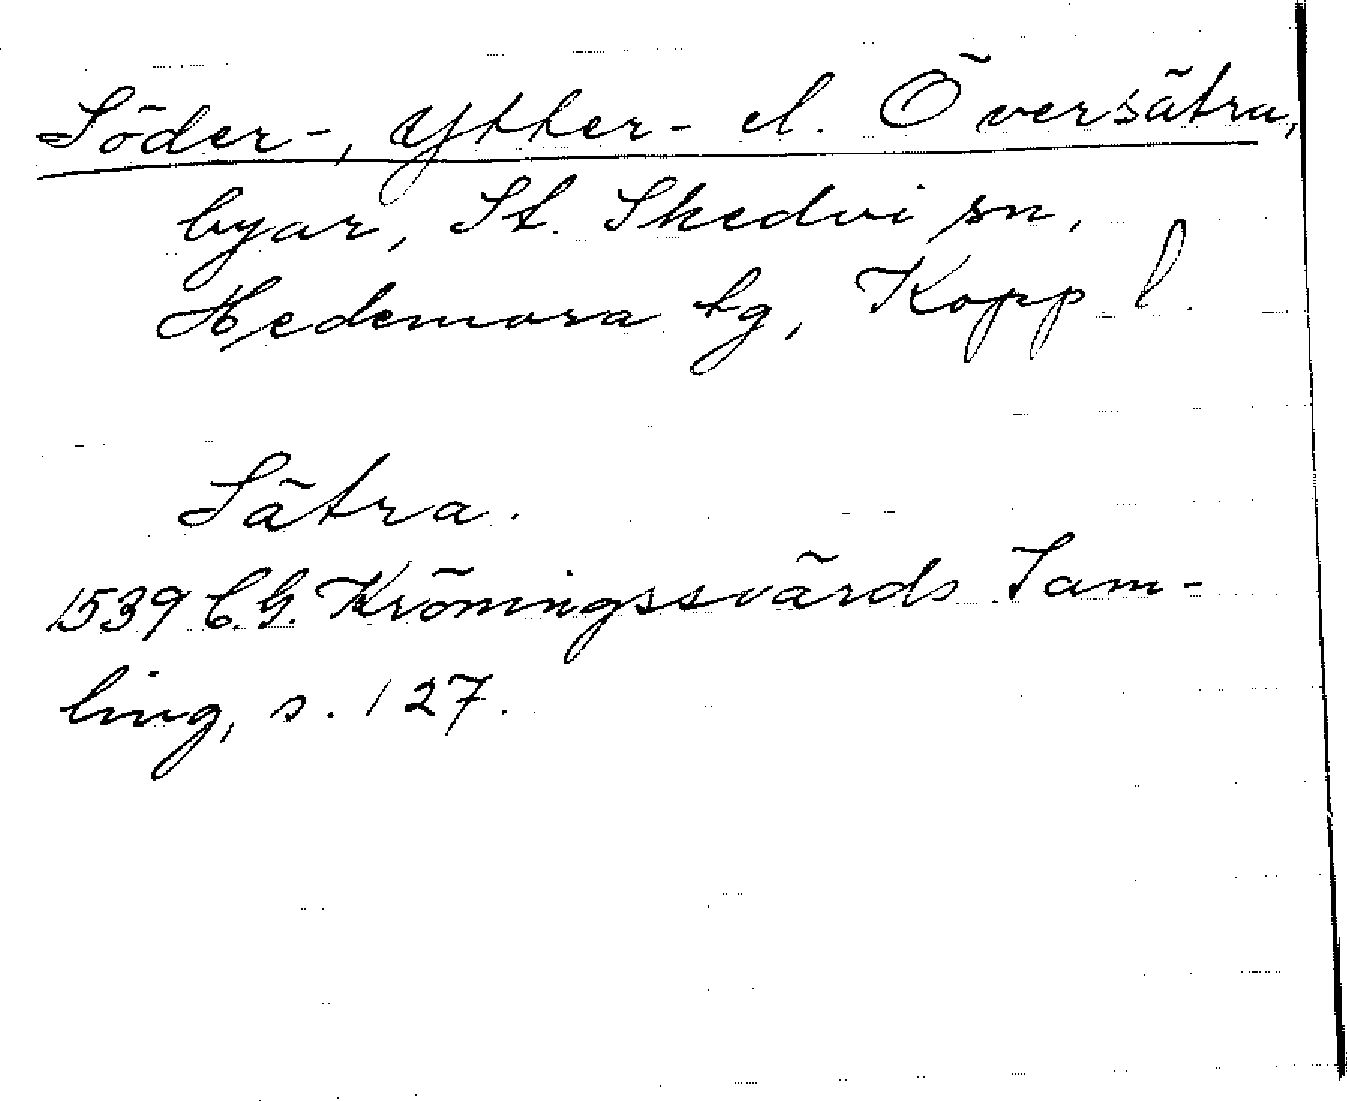 Söder-, Ytter- el. Översätra,
byar, St. Skedvi sn,
Hedemora tg, Kopp l.
Sätra.
1539 C.G. Kröningssvärds Sam-
ling, s. 127.